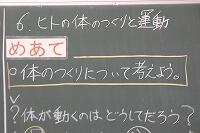 6. ヒトの体のつくりと運動
めあて
○体のつくりについて考えよう。
?体が動くのはどうしてだろう?